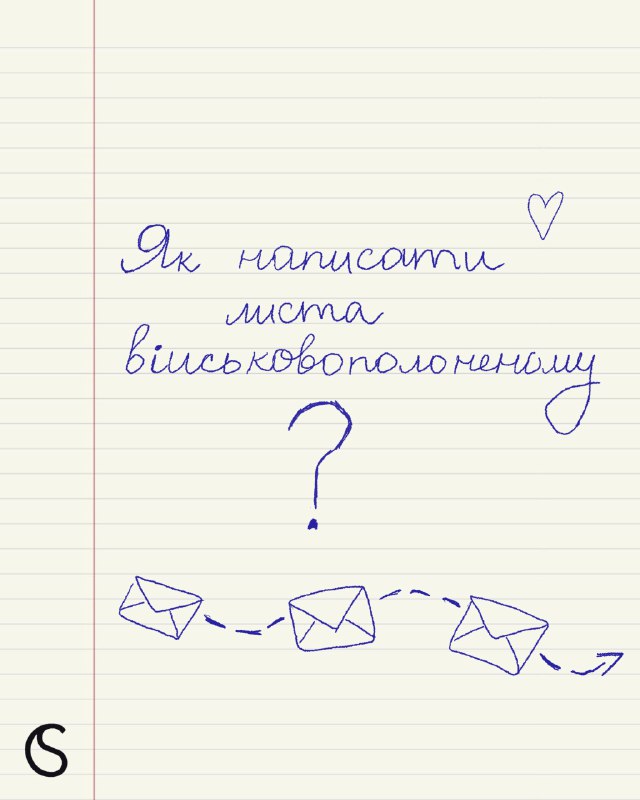 Як написати
листа
військовополоненому
?